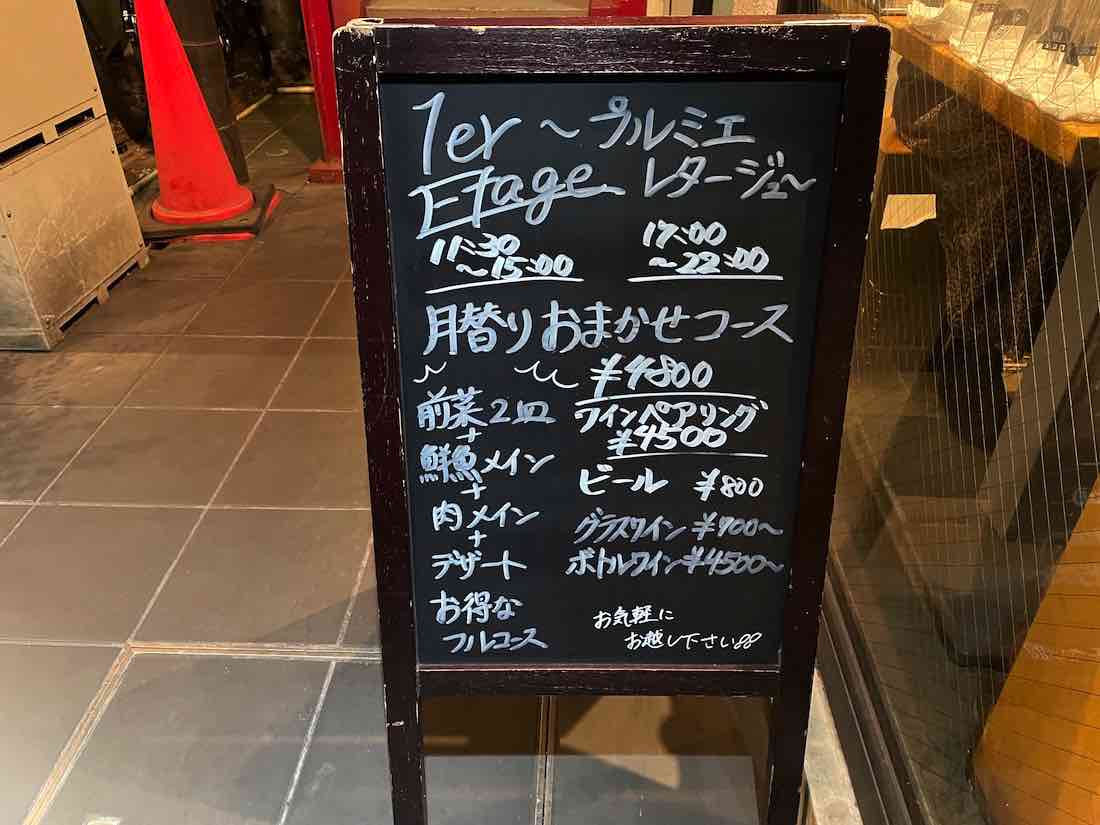 1er ～プルミエ
Etage レタージュ～
11:30
～15:00
17:00
～22:00
月替りおまかせコース
¥4800
前菜2皿
+
鮮魚メイン
+
肉メイン
+
デザート
お得な
フルコース
ワインペアリング
¥4500
ビール ¥800
グラスワイン ¥900～
ボトルワイン ¥4500～
お気軽に
お越し下さい